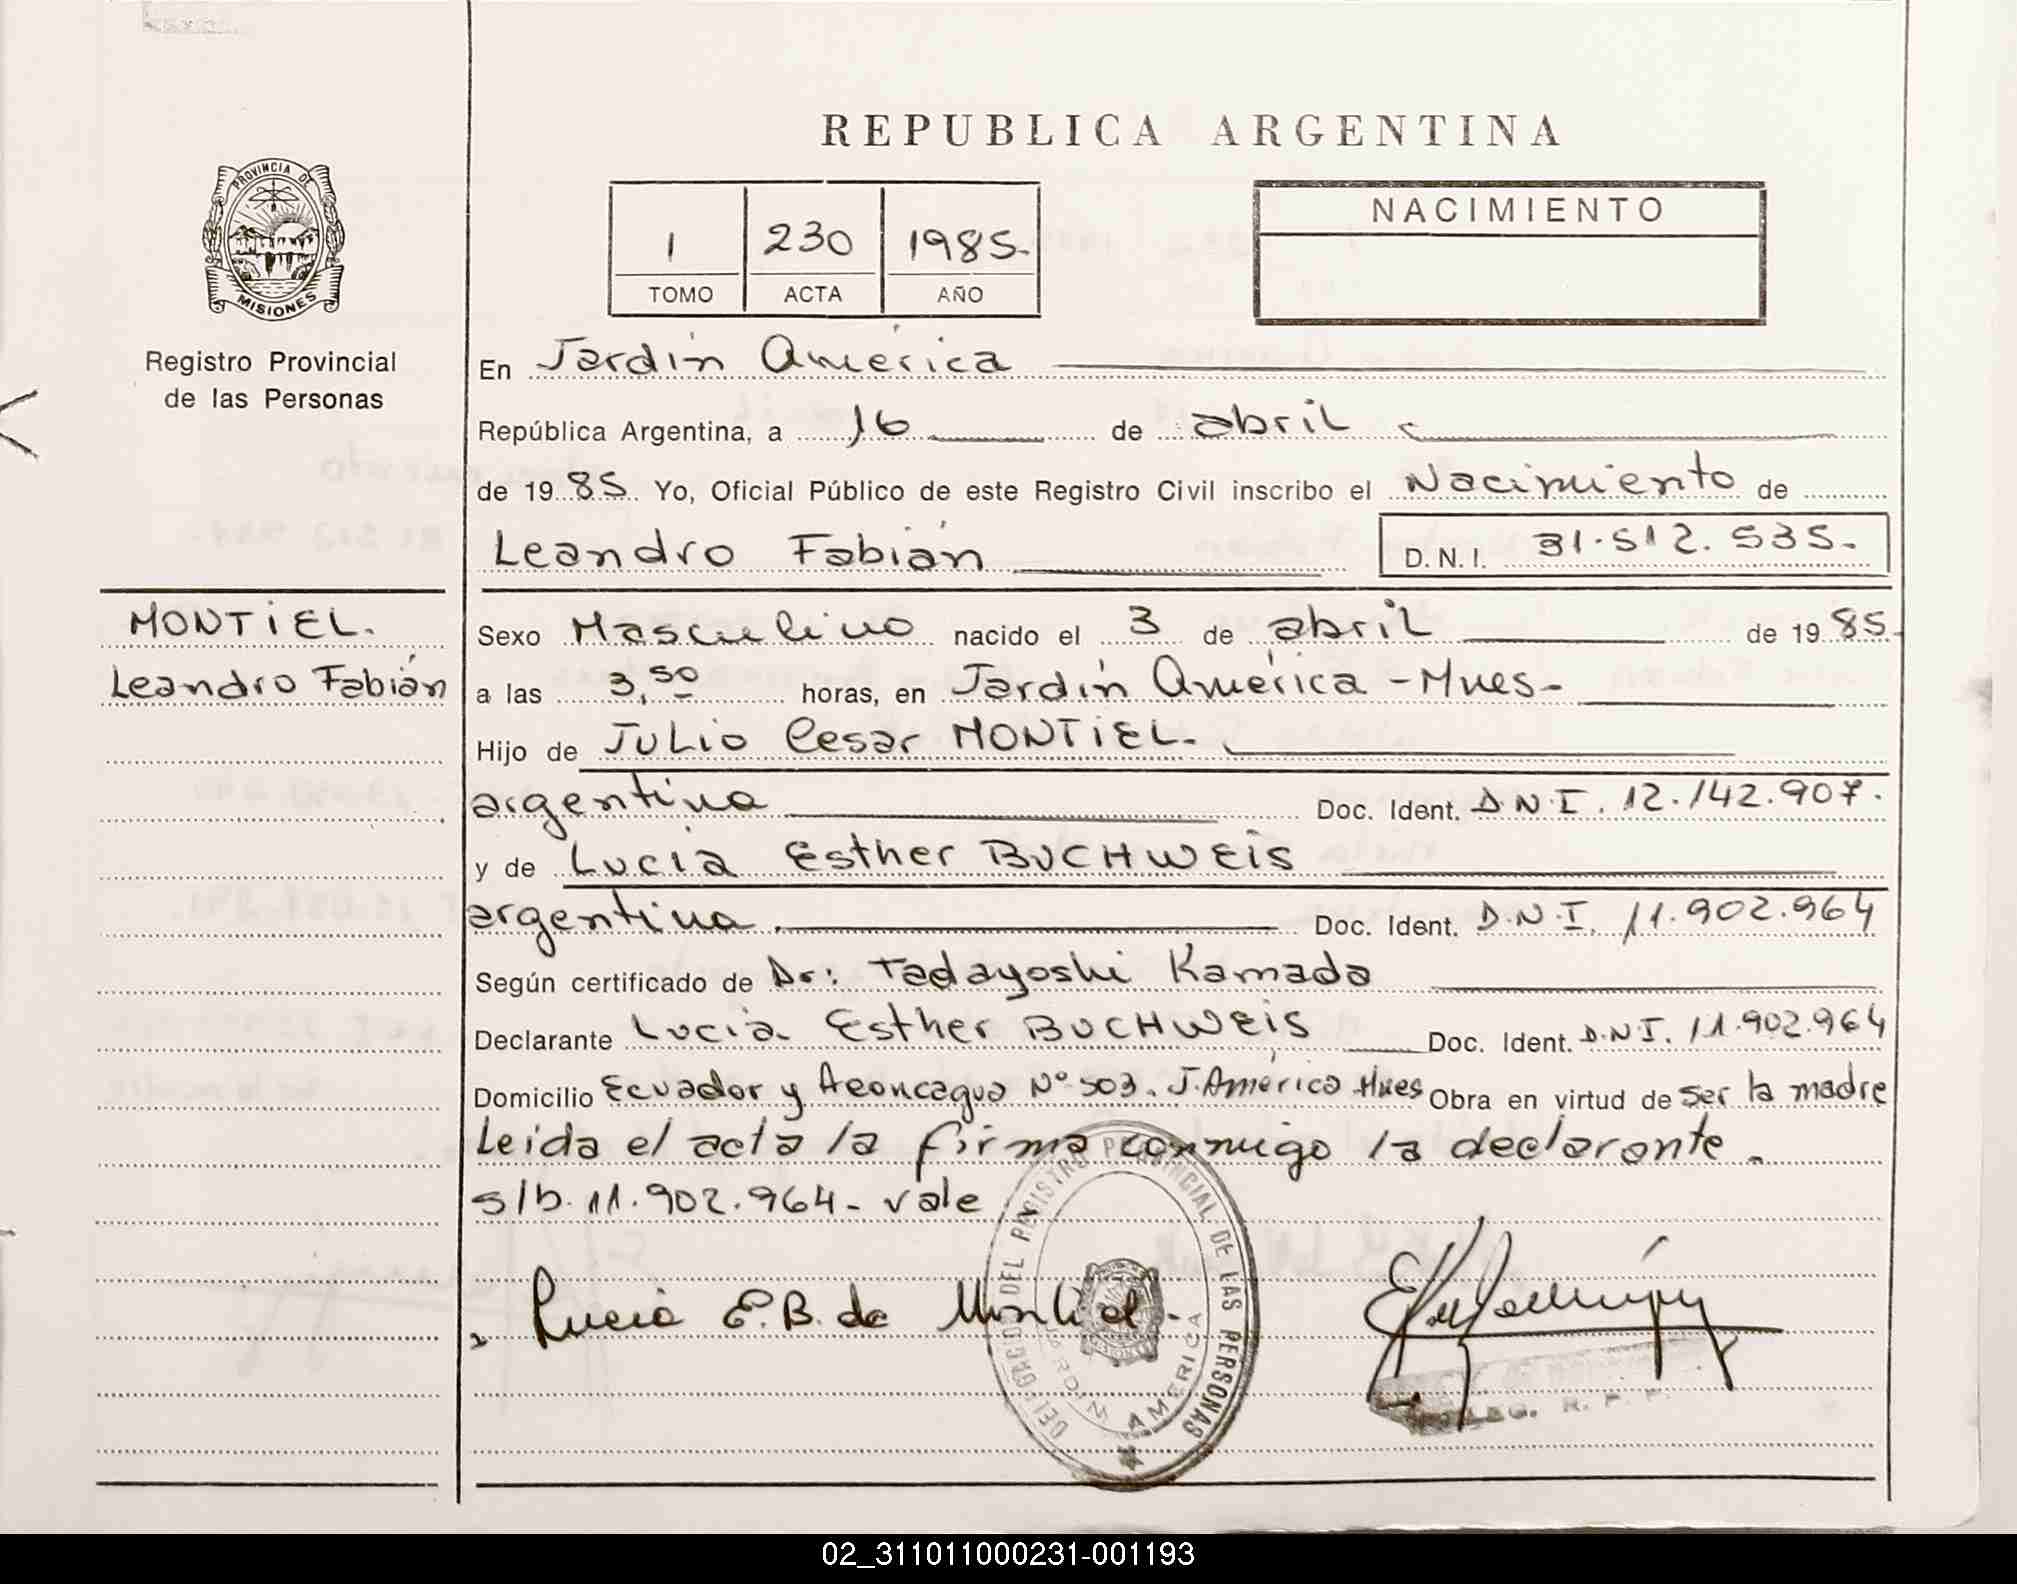 REPUBLICA ARGENTINA
PROVINCIA DE MISIONES
Registro Provincial
de las Personas
1 230 1985.
TOMO ACTA AÑO
NACIMIENTO
En Jardín América
República Argentina, a 16 de abril
de 1985 Yo, Oficial Público de este Registro Civil inscribo el Nacimiento de
Leandro Fabián D.N.I. 31.512.535.
MONTIEL.
Leandro Fabián
Sexo Masculino nacido el 3 de abril de 1985.
a las 3,50 horas, en Jardín América - Mnes -
Hijo de Julio Cesar MONTIEL.
argentina Doc. Ident. D.N.I. 12.142.907.
y de Lucia Esther BUCHWEIS
argentina. Doc. Ident. D.N.I. 11.902.964
Según certificado de Dr: Tadayoshi Kamada
Declarante Lucia Esther BUCHWEIS Doc. Ident. D.N.I. 11.902.964
Domicilio Ecuador y Aconcagua Nº 503. J. América Mnes Obra en virtud de ser la madre
Leida el acta la firma conmigo la declarante.
s/b. 11.902.964 - vale
Lucia E. B. de Montiel.
DELEGACIO DEL REGISTRO PROVINCIAL DE LAS PERSONAS
JARDIN AMERICA
02_311011000231-001193